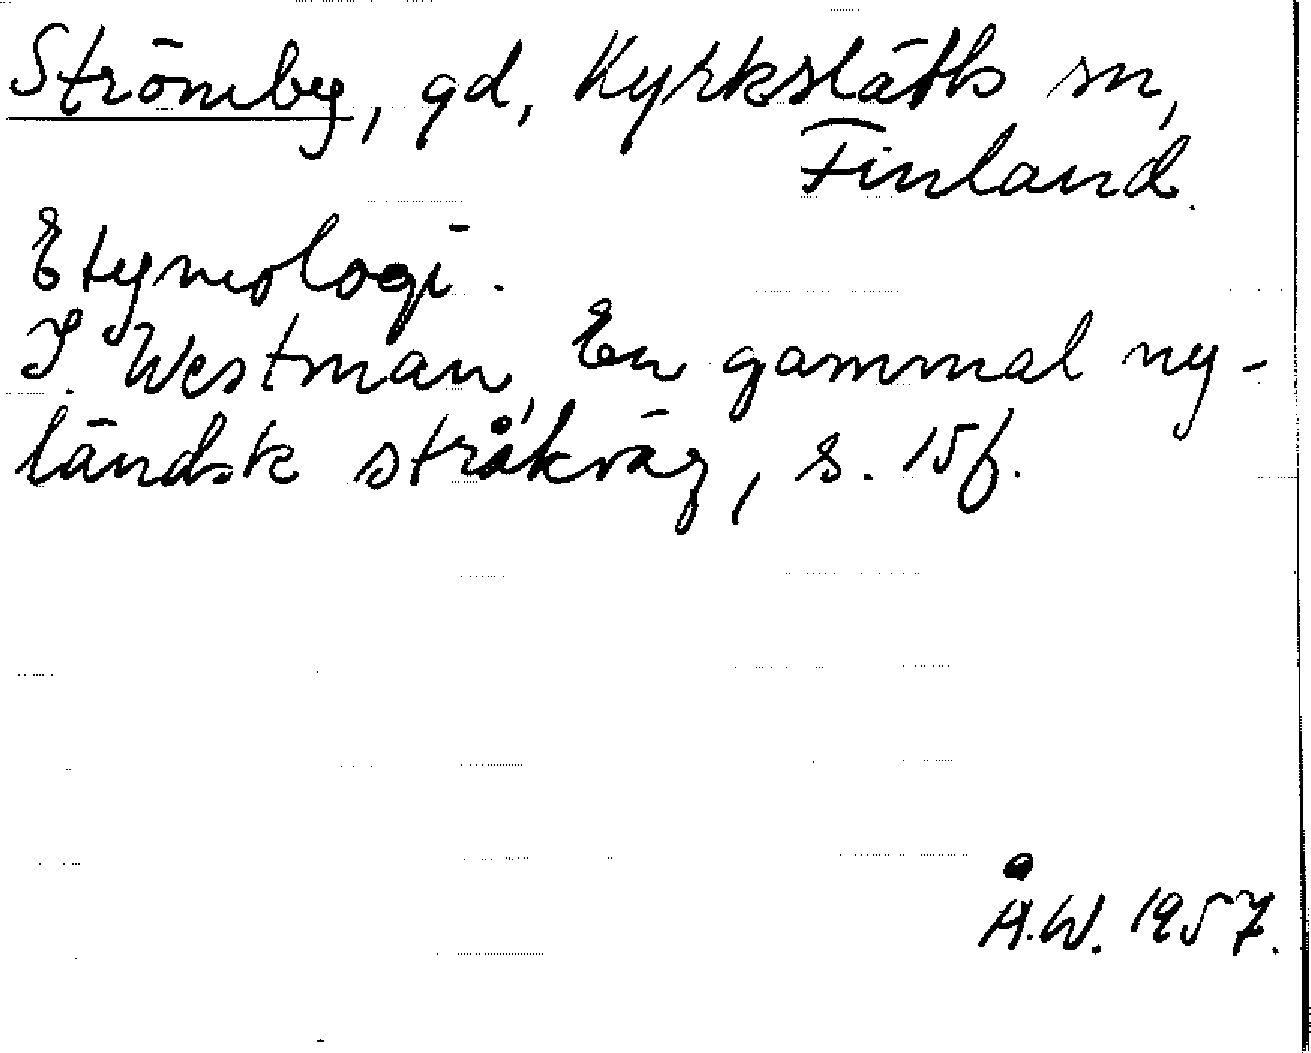 Strömby, gd, Kyrkslätts sn,
Finland.
Etymologi.
I. Westman, En gammal ny-
ländsk stråkväg, s. 15f.
Å.W. 1957.